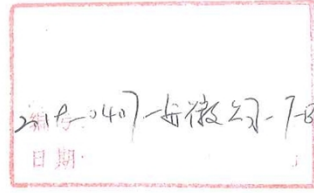 2018-0407-安徽公司-7-B
日期: